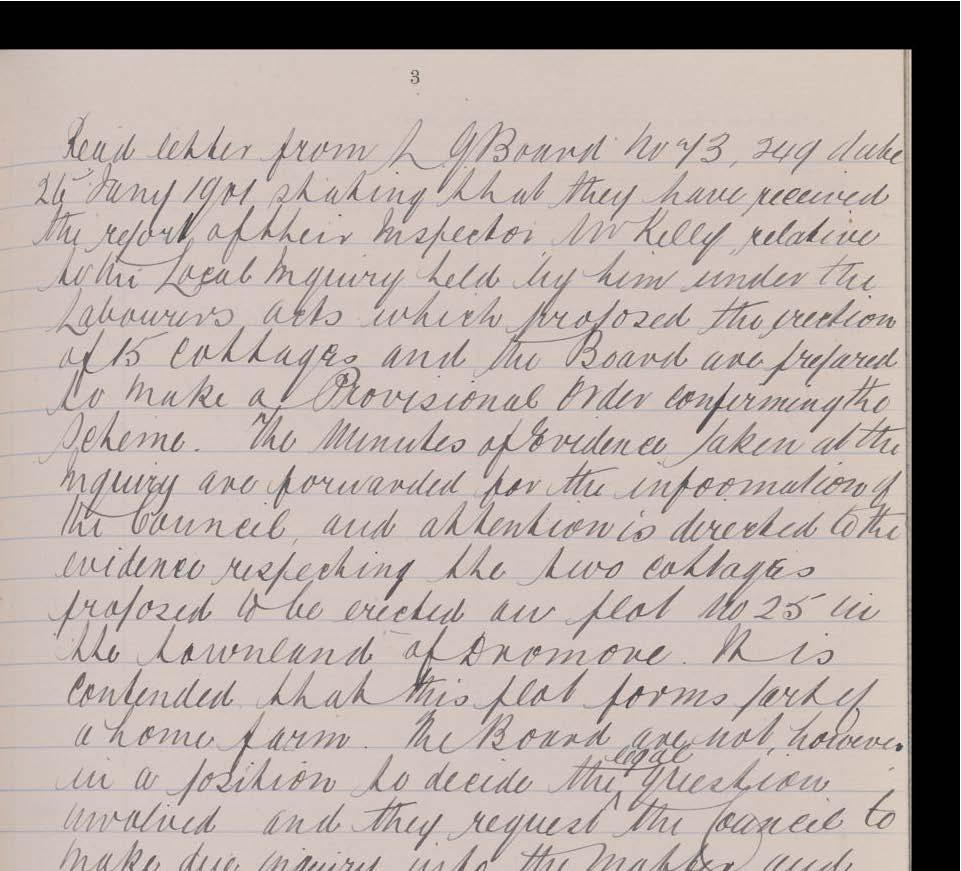 3
Read letter from L G Board No 43,249 date
26 Jany 1901 stating that they have received
the report of their Inspector Mr Kelly relative
to the Local Inquiry held by him under the
Labourers acts which proposed the erection
of 15 cottages and the Board are prepared
to make a Provisional Order confirming the
Scheme. The Minutes of Evidence taken at the
inquiry are forwarded for the information of
the Council, and attention is directed to the
evidence respecting the two cottages
proposed to be erected on plot No 25 in
the townland of Dromore. It is
contended that this plot forms part of
a home farm. The Board are not, however
in a position to decide the legal question
involved and they request the Council to
make due inquiry into the matter and